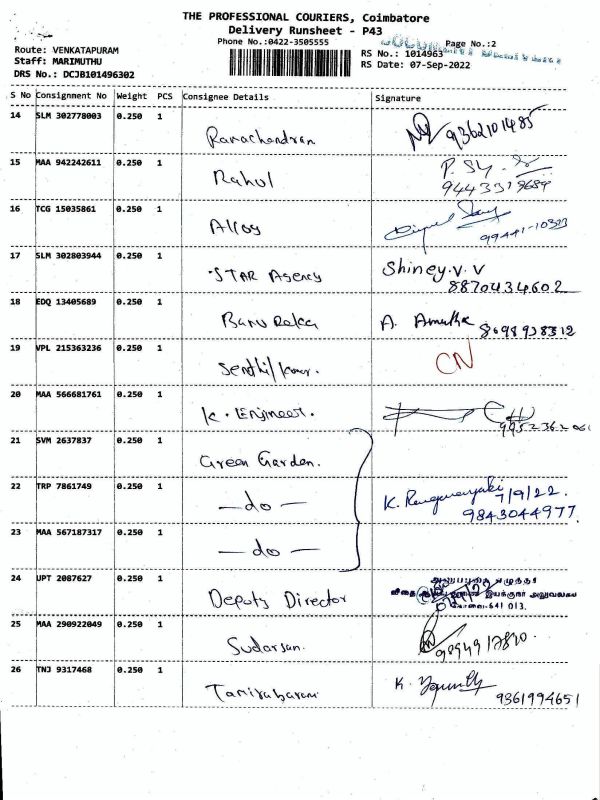 THE PROFESSIONAL COURIERS, Coimbatore
Delivery Runsheet - P43
Phone No.:0422-3505555
Page No.:2
Route: VENKATAPURAM
RS No.: 1014963
Staff: MARIMUTHU
RS Date: 07-Sep-2022
DRS No.: DCJB101496302
S No Consignment No Weight PCS Consignee Details Signature
14 SLM 302778003 0.250 1
Ramachandran 9362101485
15 MAA 942242611 0.250 1
Rahul
16 TCG 15035861 0.250 1
Alloy
17 SLM 302803944 0.250 1 Shiney.V.V
STAR Agency 8870434602
18 EDQ 13405689 0.250 1
A. Amutha 8698938312
19 VPL 215363236 0.250 1 CN
20 MAA 566681761 0.250 1
K. Engineer.
21 SVM 2637837 0.250 1
Green Garden.
22 TRP 7861749 0.250 1
— do — K. Ranganayaki 7/9/22.
9843044977
23 MAA 567187317 0.250 1
— do —
24 UPT 2087627 0.250 1
Deputy Director இயக்குநர் அலுவலகம்
641 013.
25 MAA 290922049 0.250 1
Sudarsan.
26 TNJ 9317468 0.250 1
K. 9361994651